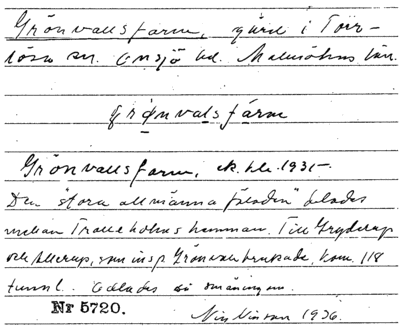 Grönvallsfarm, gård i Torr-
lösa sn. Onsjö hd. Malmöhus län.
grønvalsfárm
Grönvallsfarm, ek. kla. 1931-
Den "stora allmänna fäladen" delades
mellan Trolleholms hemman. Till Gryderup
och Allerup, som insp Grönvall brukade, kom 118
tunnl. odlades så småningom.
Nr 5720.
Nils Nilsson 1936.